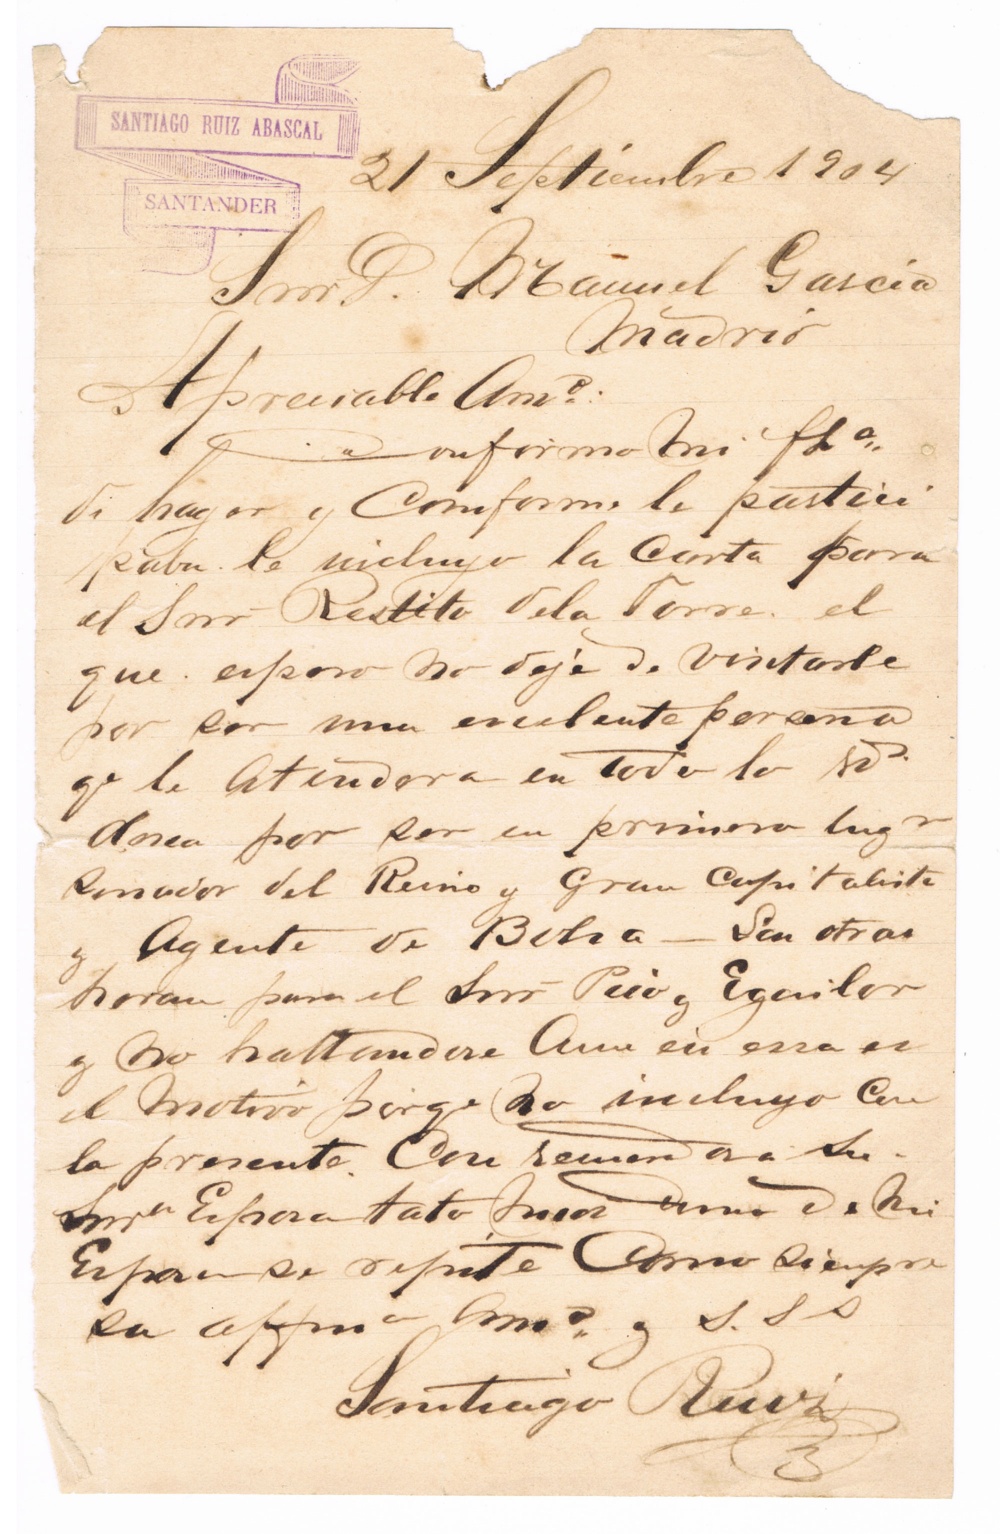 SANTIAGO RUIZ ABASCAL
SANTANDER
21 Septiembre 1904
Snr D. Manuel Garcia
Madrid
Apreciable Amº:
Conforme mi
de hayer y Comforme le partici
paba le incluyo la Carta para
el Snr Restito dela Torre. el
que espero no deje de vistarle
por ser una excelente persona
qe le Atendera en todo lo
desea por ser en primero lugr
senador del Reino y Gran Capitaliste
y Agente de Bolsa — Son otras
horan para el Snr Pico y Eguilor
y no hallandose Aun en essa es
el motivo porqe no incluyo Con
la presente. Con su
Snra Esposa tato de mi
Esposa se repite Como siempre
su affmo Amº. y S. S S
Santiago Ruiz